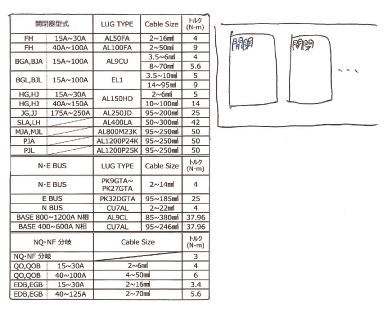 開閉器型式 LUG TYPE Cable Size トルク(N-m)
FH 15～30A AL50FA 2～16㎟ 4
FH 40A～100A AL100FA 2～50㎟ 9
BGA,BJA 15A～100A AL9CU 3.5～6㎟ 4
8～70㎟ 5.6
BGL,BJL 15A～100A EL1 3.5～10㎟ 5
14～95㎟ 9
HG,HJ 15A～30A AL150HD 2～6㎟ 5
HG,HJ 40A～150A 10～100㎟ 14
JG,JJ 175A～250A AL250JD 95～200㎟ 25
SLA,LH AL400LA 50～300㎟ 42
MJA,MJL AL800M23K 95～250㎟ 50
PJA AL1200P24K 95～250㎟ 50
PJL AL1200P25K 95～250㎟ 50
N・E BUS LUG TYPE Cable Size トルク(N-m)
N・E BUS PK9GTA～PK27GTA 2～14㎟ 4
E BUS PK32DGTA 95～185㎟ 25
N BUS CU7AL 2～22㎟ 4
BASE 800～1200A N相 AL9CL 85～380㎟ 37.96
BASE 400～600A N相 CU7AL 95～246㎟ 37.96
NQ・NF 分岐 Cable Size トルク(N-m)
NQ・NF 分岐 3
QO,QOB 15～30A 2～6㎟ 4
QO,QOB 40～100A 4～50㎟ 6
EDB,EGB 15～30A 2～16㎟ 3.4
EDB,EGB 40～125A 2～70㎟ 5.6